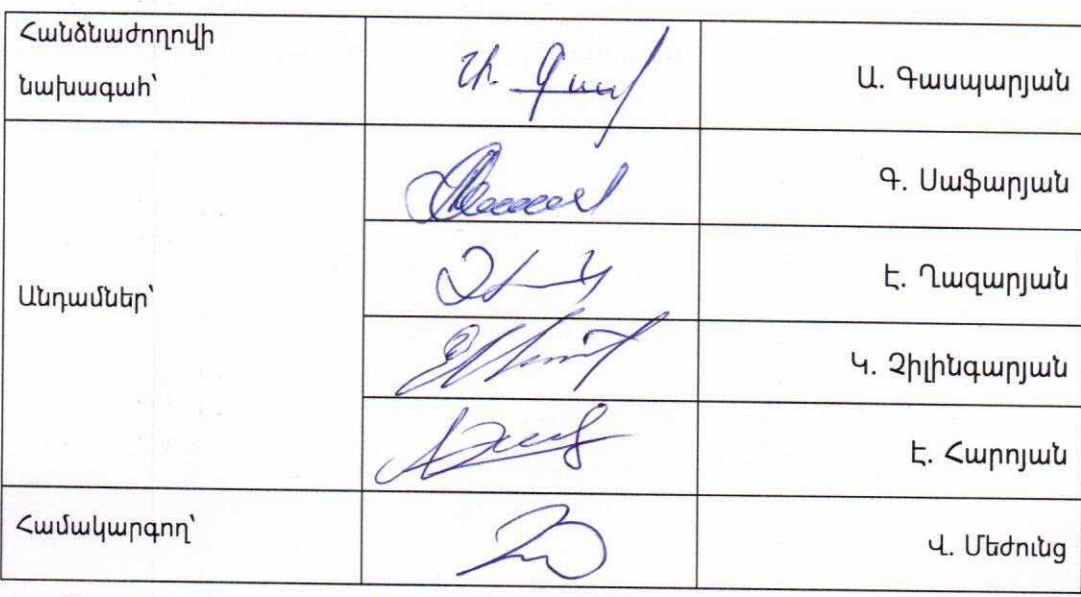 Հանձնաժողովի
նախագահ՝
Ա. Գասպարյան
Գ. Սաֆարյան
Անդամներ՝
Է. Ղազարյան
Կ. Չիլինգարյան
Է. Հարոյան
Համակարգող՝
Վ. Մեժունց